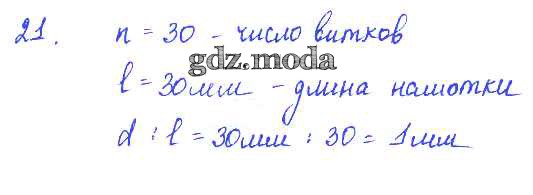 21. n = 30 - число витков
gdz.moda
l = 30мм - длина намотки
d : l = 30мм : 30 = 1мм